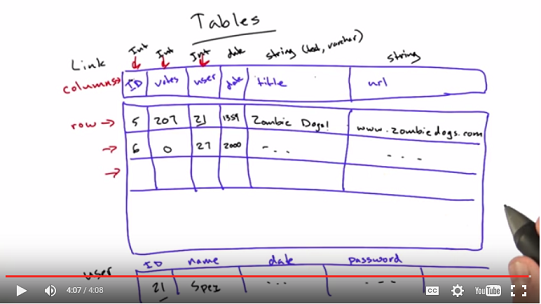 Tables
Link Int Int Int date string (text, varchar) string
columns → ID votes user date title url
row → 5 207 21 1359 Zombie Dogs! www.zombiedogs.com
→ 6 0 27 2000 - . . - . .
→
user ID name date password
21 Spez ... - . . .
4:07 / 4:08 CC YouTube